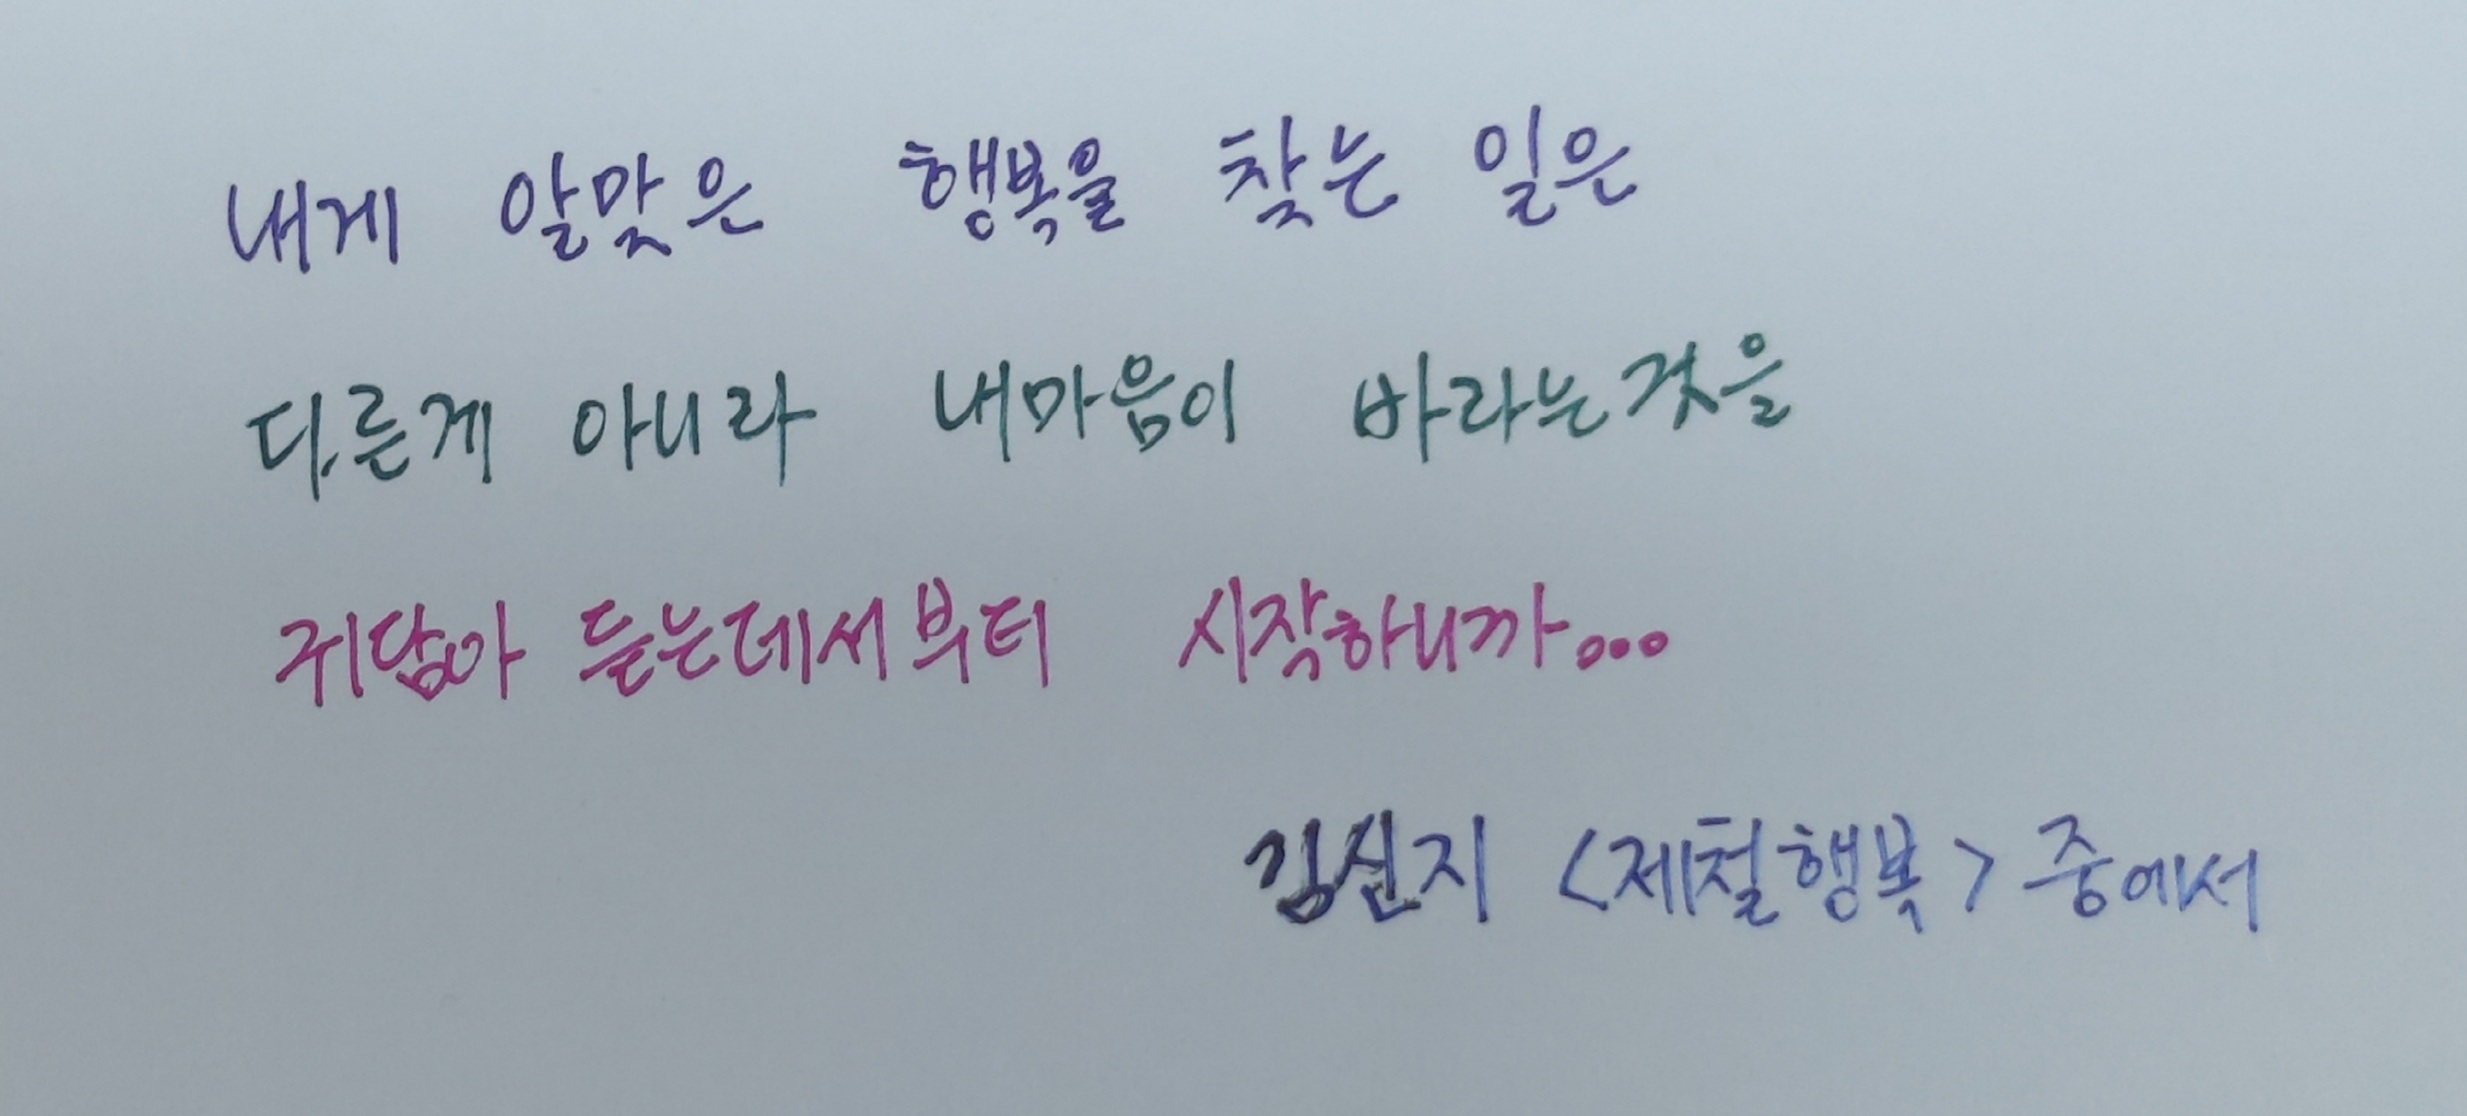 내게 알맞은 행복을 찾는 일은
다른게 아니라 내마음이 바라는것을
귀담아 듣는데서부터 시작하니까...
김신지 <제철행복> 중에서